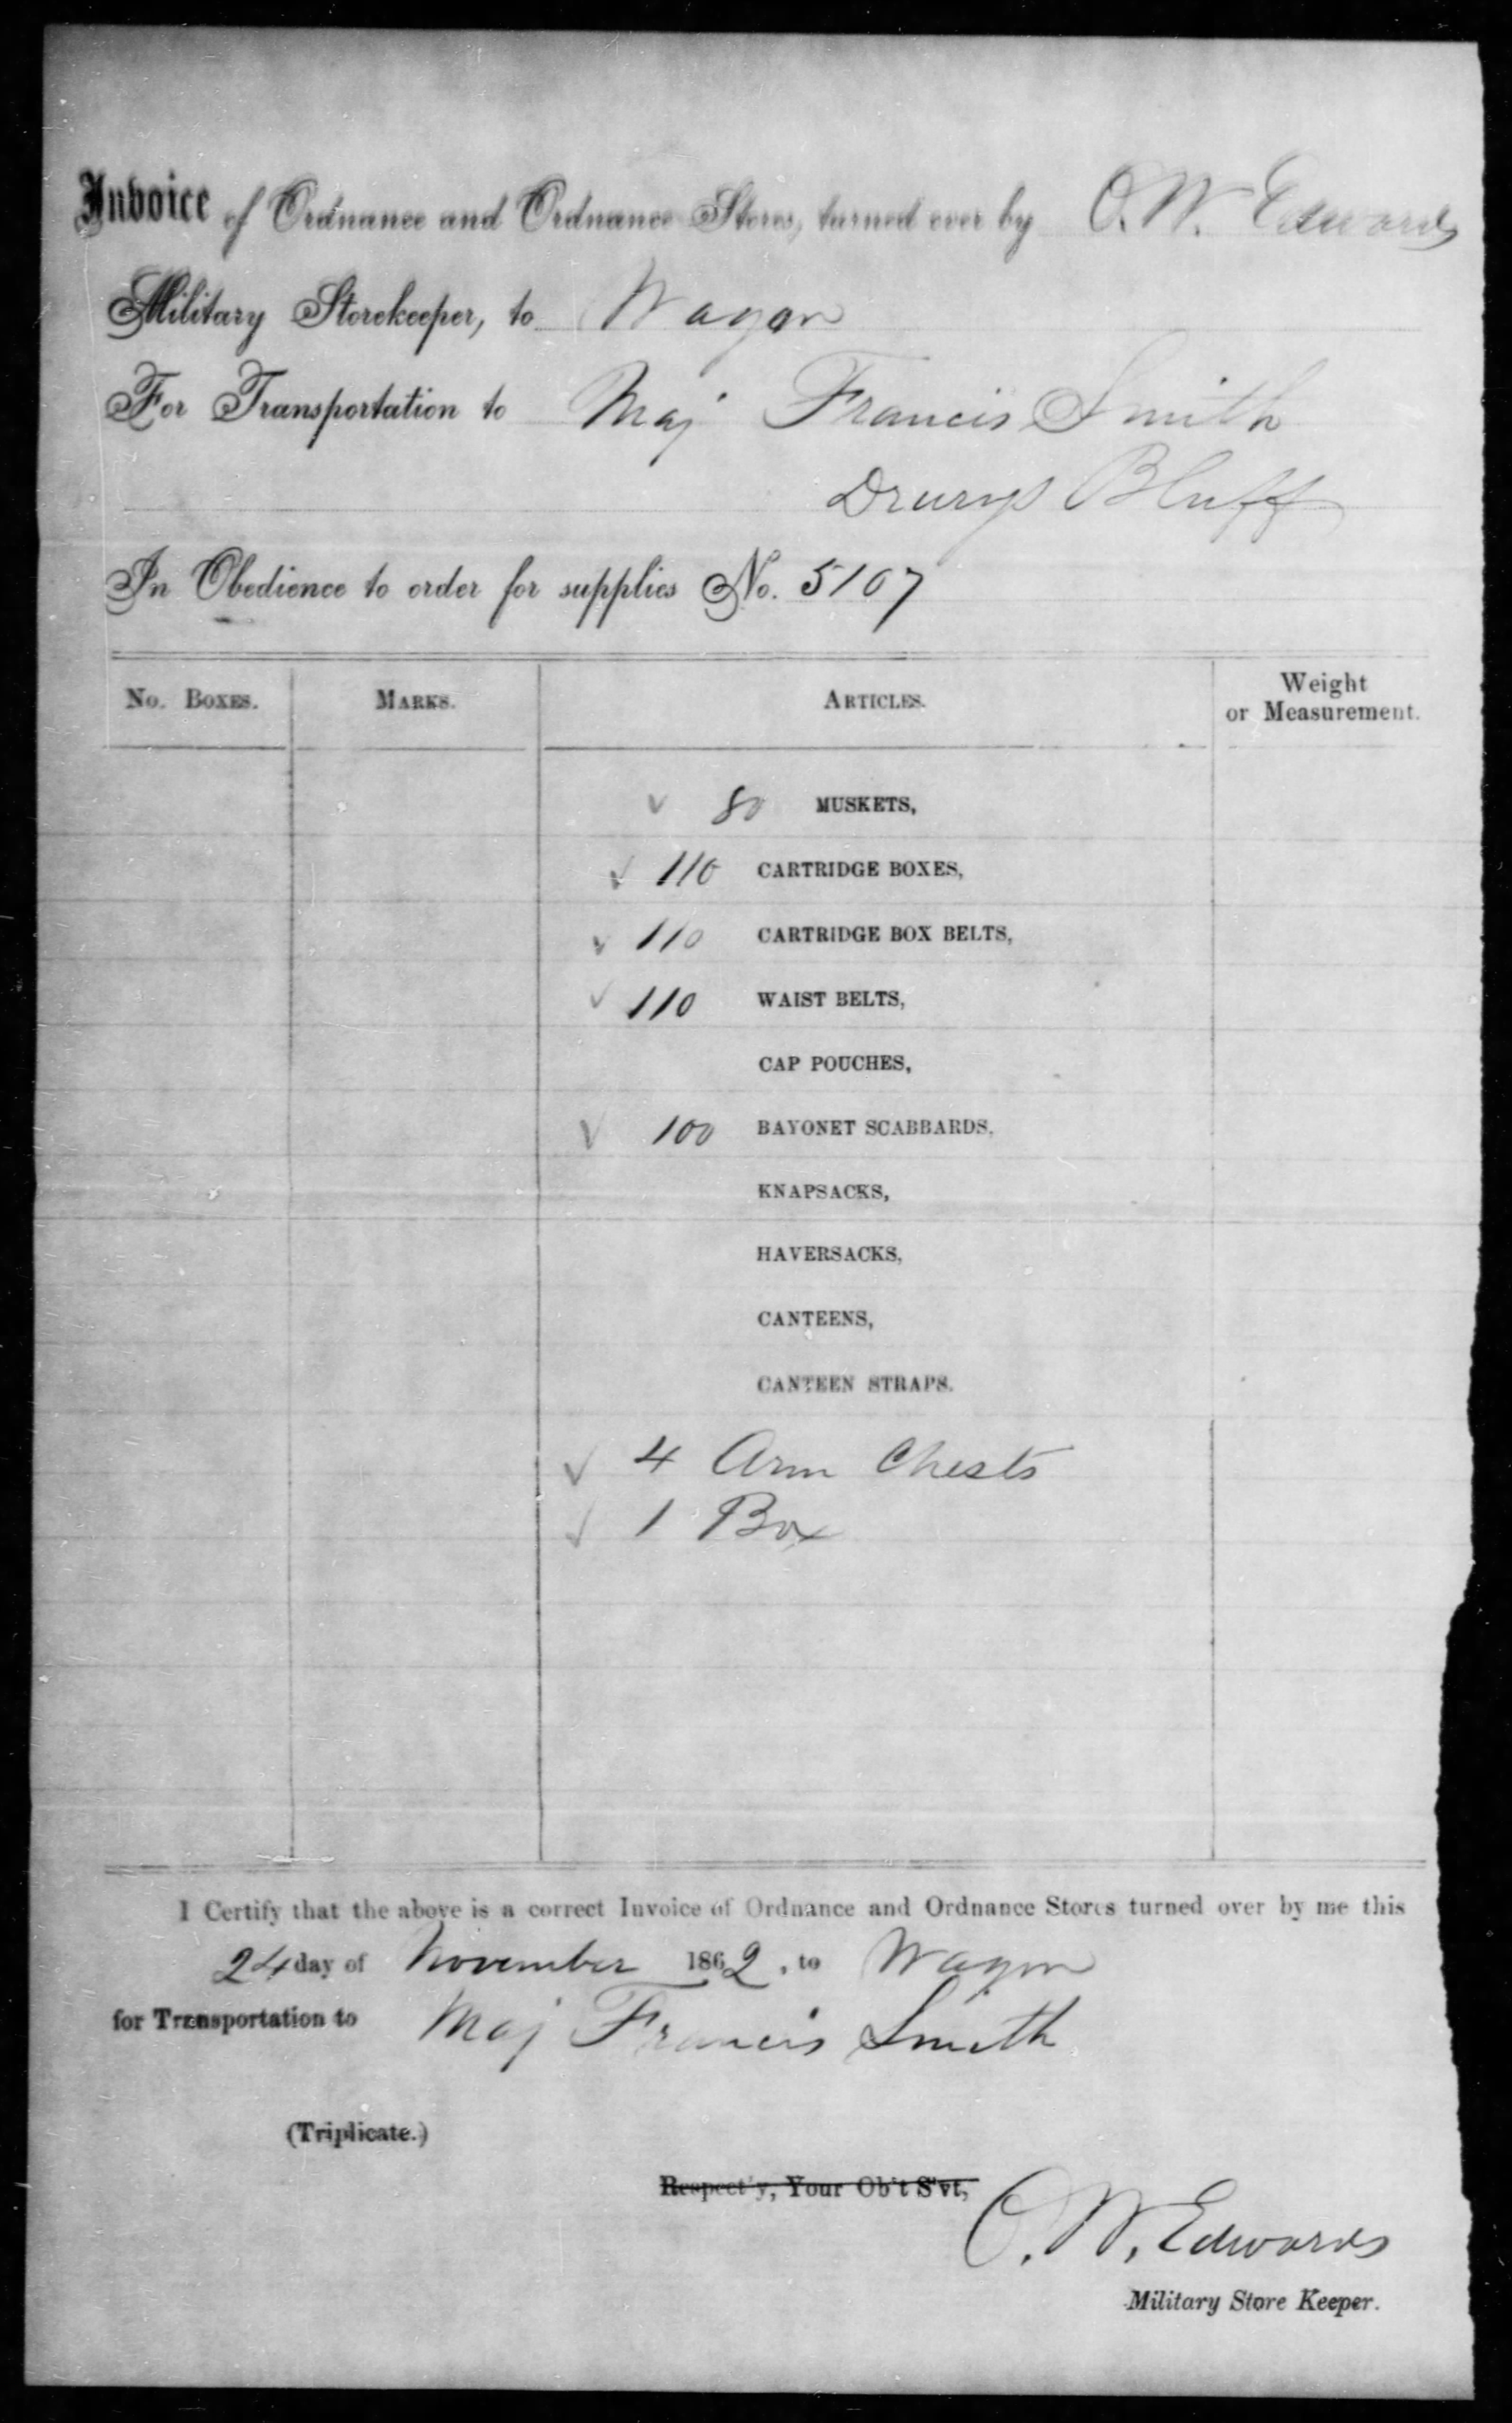 Invoice of Ordnance and Ordnance Stores, turned over by O. W. Edwards
Military Storekeeper, to Wagon
For Transportation to Maj Francis Smith
Drurys Bluff
In Obedience to order for supplies No. 5107
No. Boxes. Marks. Articles. Weight or Measurement.
√ 80 MUSKETS,
√ 110 CARTRIDGE BOXES,
√ 110 CARTRIDGE BOX BELTS,
√ 110 WAIST BELTS,
CAP POUCHES,
√ 100 BAYONET SCABBARDS,
KNAPSACKS,
HAVERSACKS,
CANTEENS,
CANTEEN STRAPS.
√ 4 Arm Chests
√ 1 Box
I Certify that the above is a correct Invoice of Ordnance and Ordnance Stores turned over by me this
24 day of November 1862, to Wagon
for Transportation to Maj Francis Smith
(Triplicate.)
Respect'y, Your Ob't S'vt,
O. W. Edwards
Military Store Keeper.